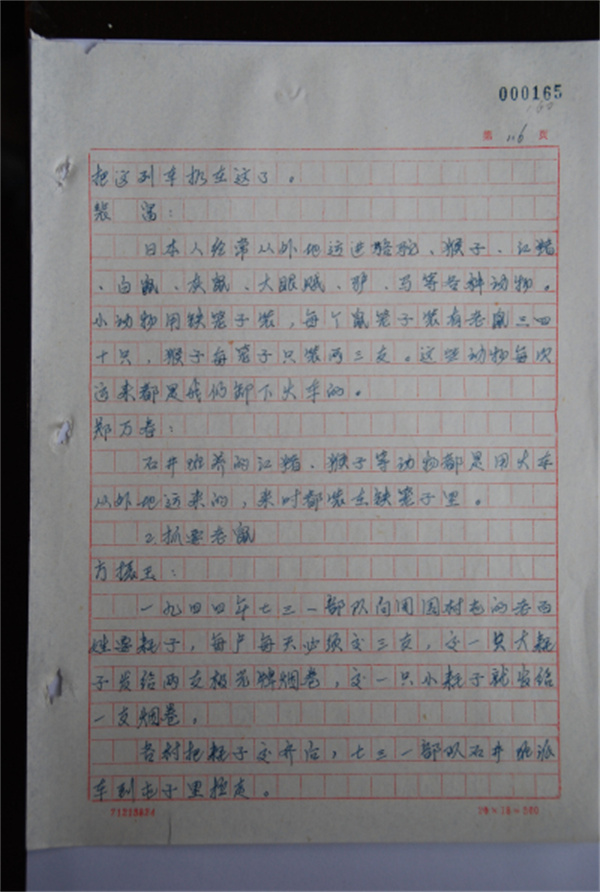 000165
160
第 116 页
把这列车扔在这了。
裴 富：
日本人经常从外地运进骆驼、猴子、江猪
、白鼠、灰鼠、大眼贼、驴、马等各种动物。
小动物用铁笼子装，每个鼠笼子装有老鼠三四
十只，猴子每笼子只装两三支。这些动物每次
运来都是我们卸下火车的。
郑万春：
石井班养的江猪、猴子等动物都是用火车
从外地运来的，来时都装在铁笼子里。
2.抓要老鼠
方振玉：
一九四四年七三一部队向周围村屯的老百
姓要耗子，每户每天必须交三支，交一只大耗
子发给两支极光牌烟卷，交一只小耗子就发给
一支烟卷，
各村把耗子交齐后，七三一部队石井班派
车到屯子里拉走。